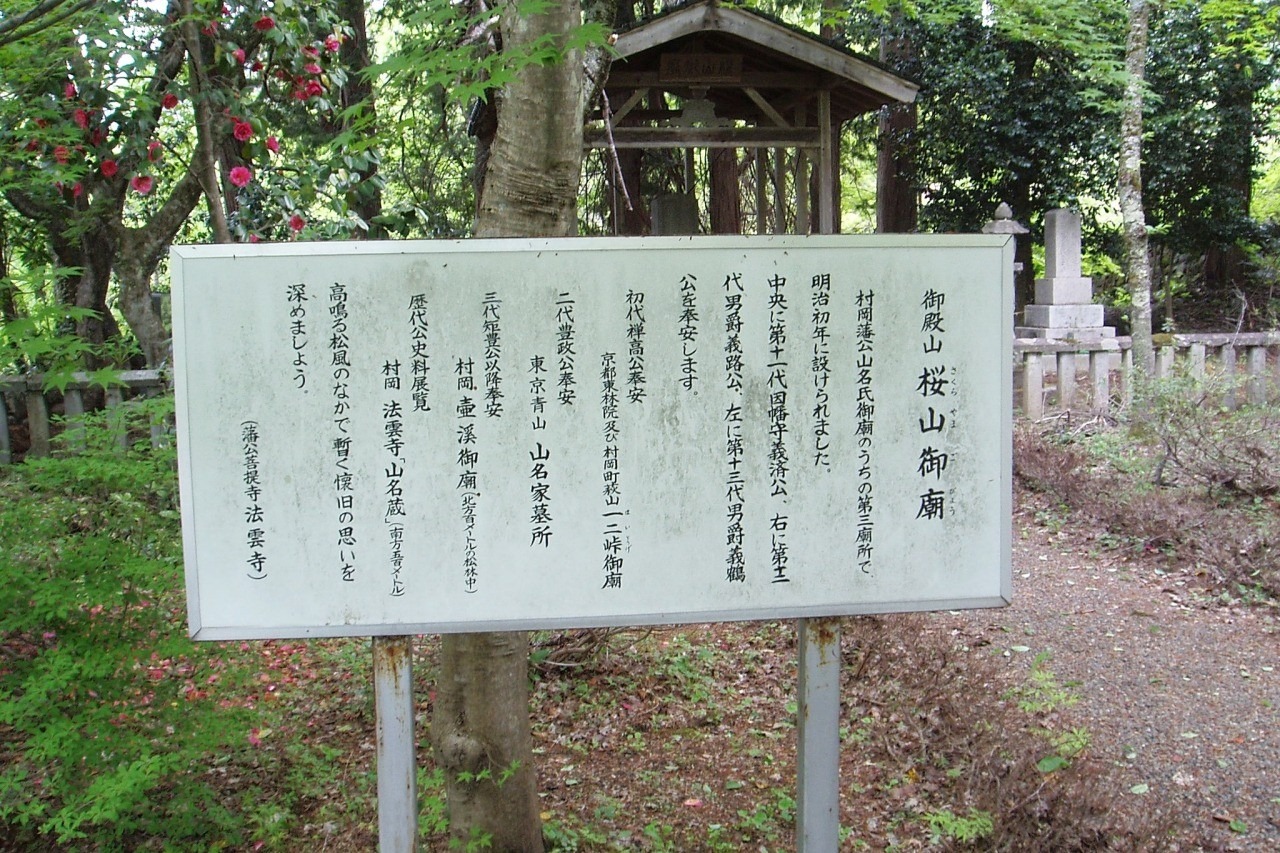 御殿山 桜山御廟
さくらやまごびょう
村岡藩公山名氏御廟のうちの第三廟所で、
明治初年に設けられました。
中央に第十一代因幡守義済公、右に第十二
代男爵義路公、左に第十三代男爵義鶴
公を奉安します。
初代禅高公奉安
京都東林院及び村岡町萩山一二峠御廟
二代豊政公奉安
東京青山 山名家墓所
三代矩豊公以降奉安
村岡 壷溪御廟(北方百メートルの松林中)
歴代公史料展覧
村岡 法雲寺「山名蔵」(南方五百メートル)
高鳴る松風のなかで暫く懐旧の思いを
深めましょう。
(藩公菩提寺法雲寺)